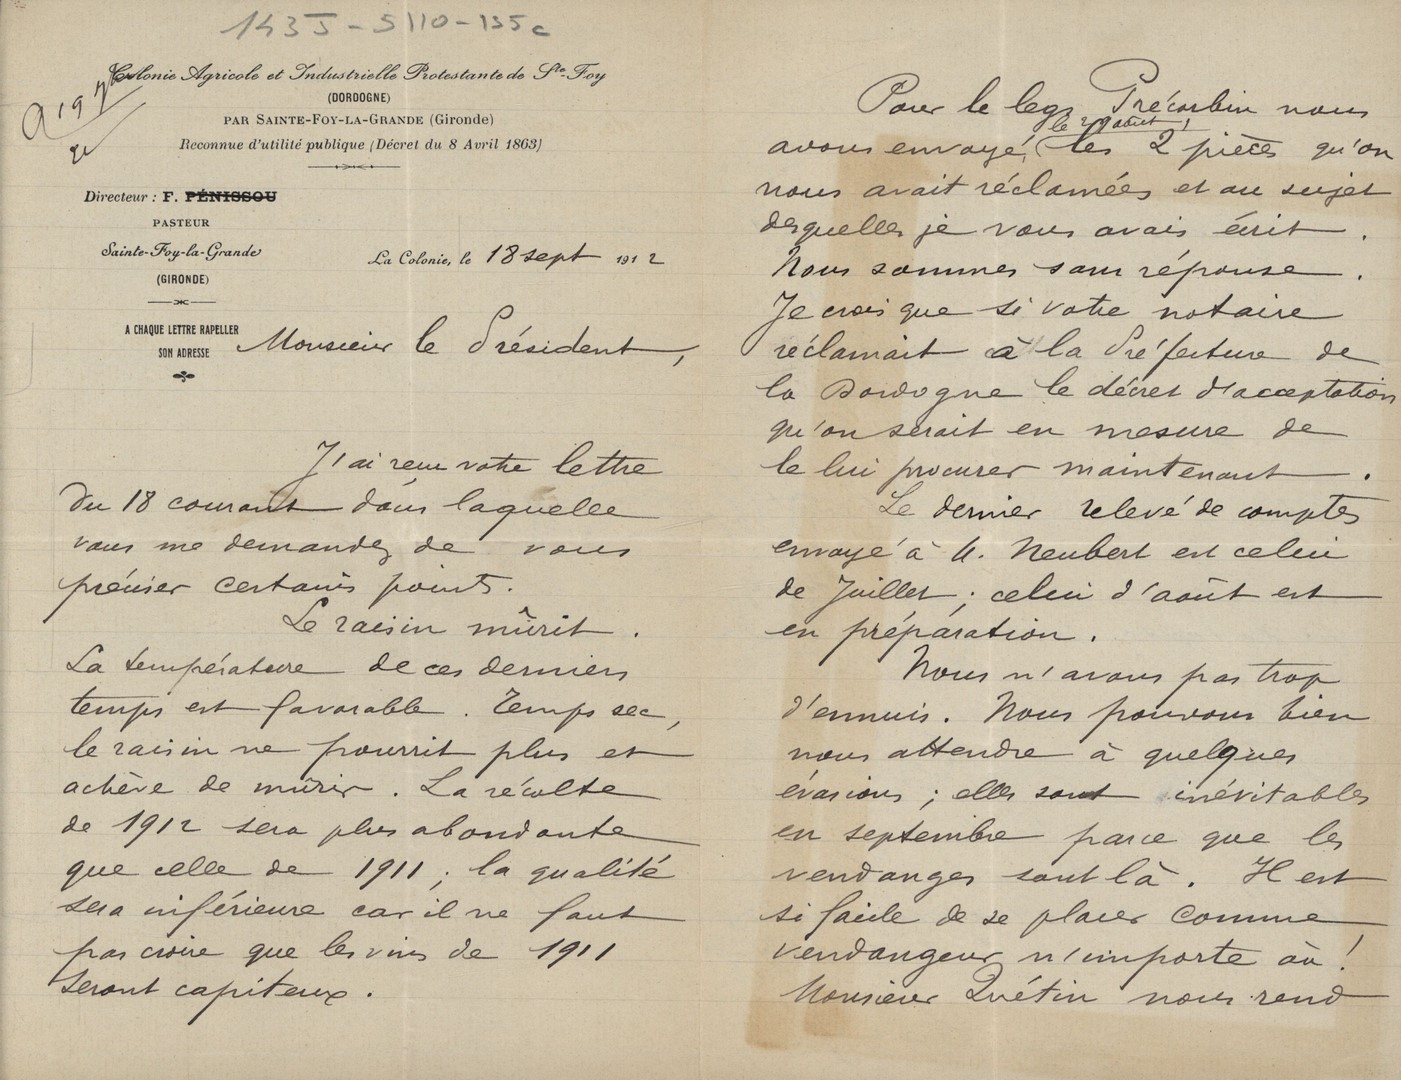 143J-5110-135c
Colonie Agricole et Industrielle Protestante de Ste-Foy
(DORDOGNE)
PAR SAINTE-FOY-LA-GRANDE (Gironde)
Reconnue d'utilité publique (Décret du 8 Avril 1863)
Directeur : F. PÉNISSOU
PASTEUR
Sainte-Foy-la-Grande
(GIRONDE)
La Colonie, le 18 sept 1912
A CHAQUE LETTRE RAPELLER
SON ADRESSE
Monsieur le Président,
J'ai reçu votre lettre
du 18 courant dans laquelle
vous me demandez de vous
préciser certains points.
Le raisin mûrit.
La température de ces derniers
temps est favorable. Temps sec,
le raisin ne pourrit plus et
achève de mûrir. La récolte
de 1912 sera plus abondante
que celle de 1911 ; la qualité
sera inférieure car il ne faut
pas croire que les vins de 1911
seront capiteux.
Pour le legs Précorbin nous
avons envoyé, (le 29 août) les 2 pièces qu'on
nous avait réclamées et au sujet
desquelles je vous avais écrit.
Nous sommes sans réponse.
Je crois que si votre notaire
réclamait à la Préfecture de
la Dordogne le décret d'acceptation
qu'on serait en mesure de
le lui procurer maintenant.
Le dernier relevé de comptes
envoyé à M. Neubert est celui
de Juillet ; celui d'août est
en préparation.
Nous n'avons pas trop
d'ennuis. Nous pouvons bien
nous attendre à quelques
évasions ; elles sont inévitables
en septembre parce que les
vendanges sont là. Il est
si facile de se placer comme
vendangeur n'importe où !
Monsieur Quétin nous rend